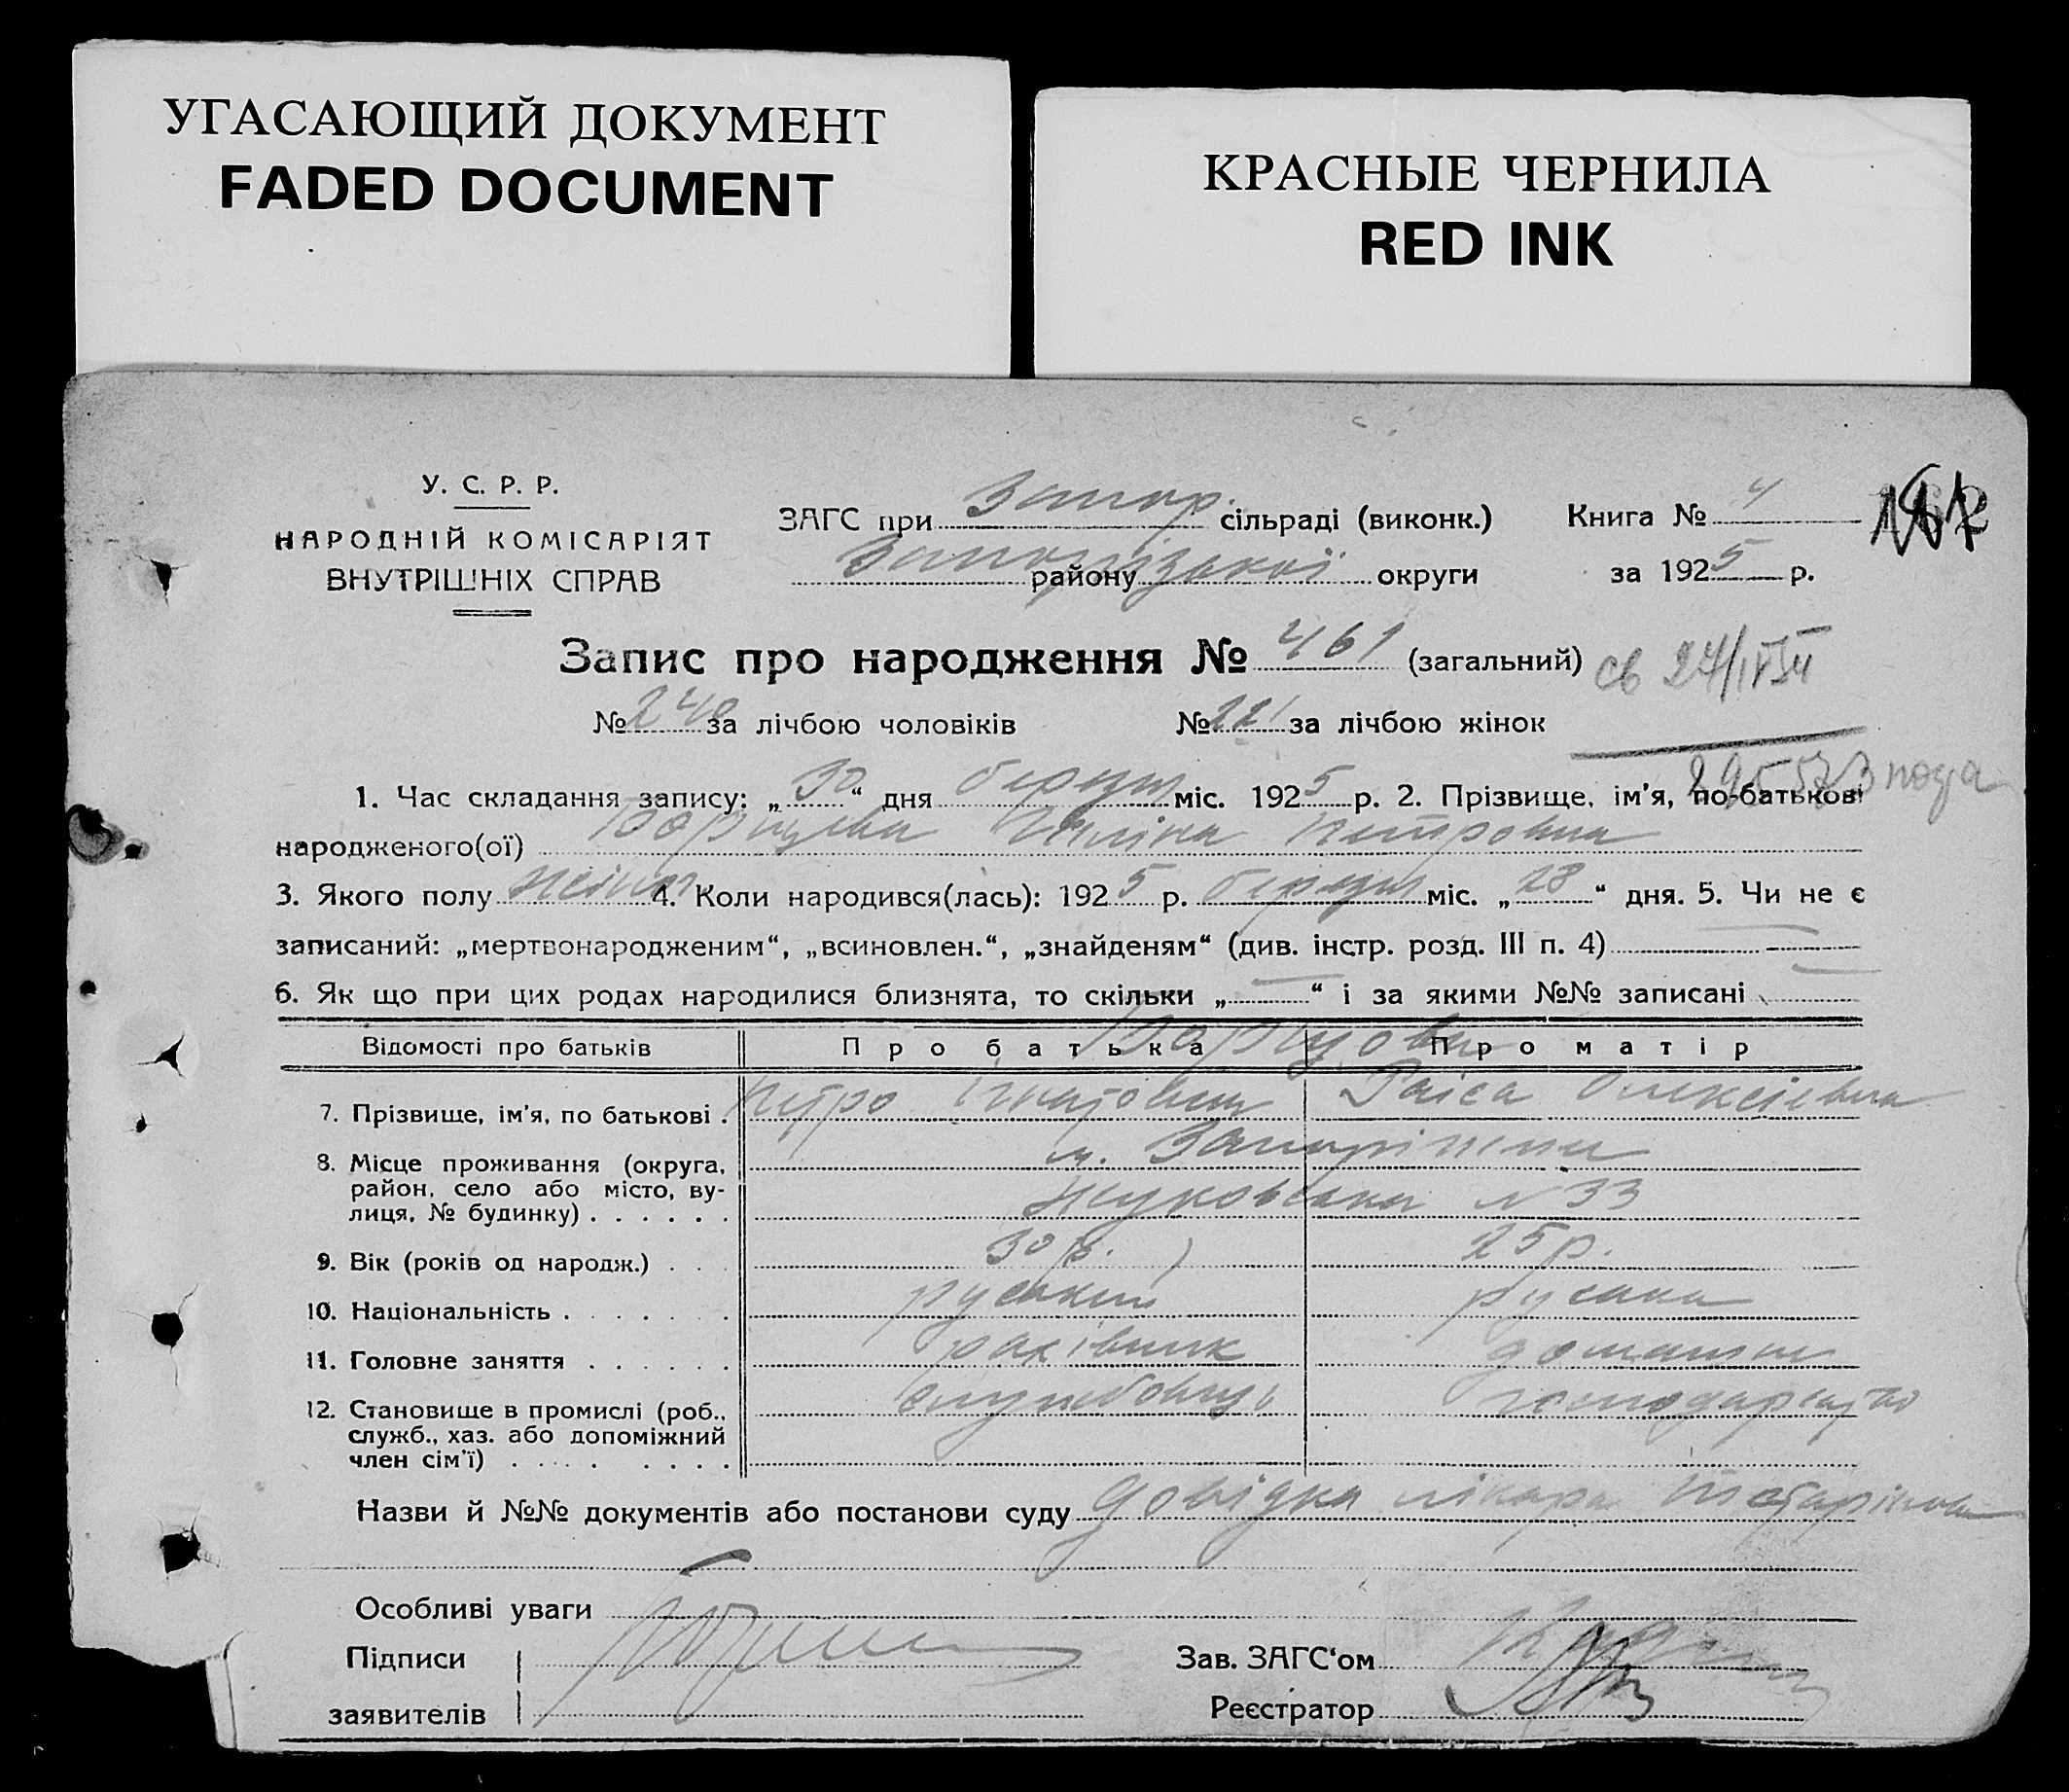 УГАСАЮЩИЙ ДОКУМЕНТ
FADED DOCUMENT
КРАСНЫЕ ЧЕРНИЛА
RED INK
У. С. Р. Р.
НАРОДНІЙ КОМІСАРІЯТ
ВНУТРІШНІХ СПРАВ
ЗАГС при Запор. сільраді (виконк.)
Запорізької району округи
Книга № 4
за 1925 р.
Запис про народження № 461 (загальний)
св 24/
№ 240 за лічбою чоловіків № 221 за лічбою жінок
1. Час складання запису: „30“ дня березня міс. 1925 р. 2. Прізвище, ім’я, по-батькові
народженого(ої) Петровна
3. Якого полу жіноч 4. Коли народився(лась): 1925 р. березня міс. „28“ дня. 5. Чи не є
записаний: „мертвонародженим“, „всиновлен.“, „знайденям“ (див. інстр. розд. III п. 4)
6. Як що при цих родах народилися близнята, то скільки „ “ і за якими №№ записані
Відомості про батьків Про батька Про матір
7. Прізвище, ім’я, по батькові . Петро Ігнатович Раіса Олексієвна
8. Місце проживання (округа, м. Запоріжжя
район, село або місто, ву-
лиця, № будинку) . . . . . . Жуковська № 33
9. Вік (років од народж.) . . . 30 р. 25 р.
10. Національність . . . . . . . руський руська
11. Головне заняття . . . . . . рахівник домашнє
12. Становище в промислі (роб., службовець господарство
служб., хаз. або допоміжний
член сім’ї) . . . . . . . .
Назви й №№ документів або постанови суду довідка лікаря
Особливі уваги
Підписи
заявителів
Зав. ЗАГС‘ом
Реєстратор